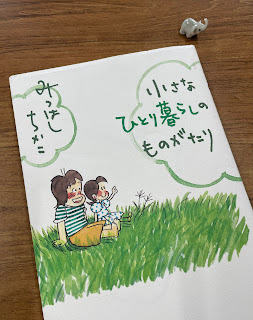 小さな
ひとり暮らしの
ものがたり
みつはし
ちかこ